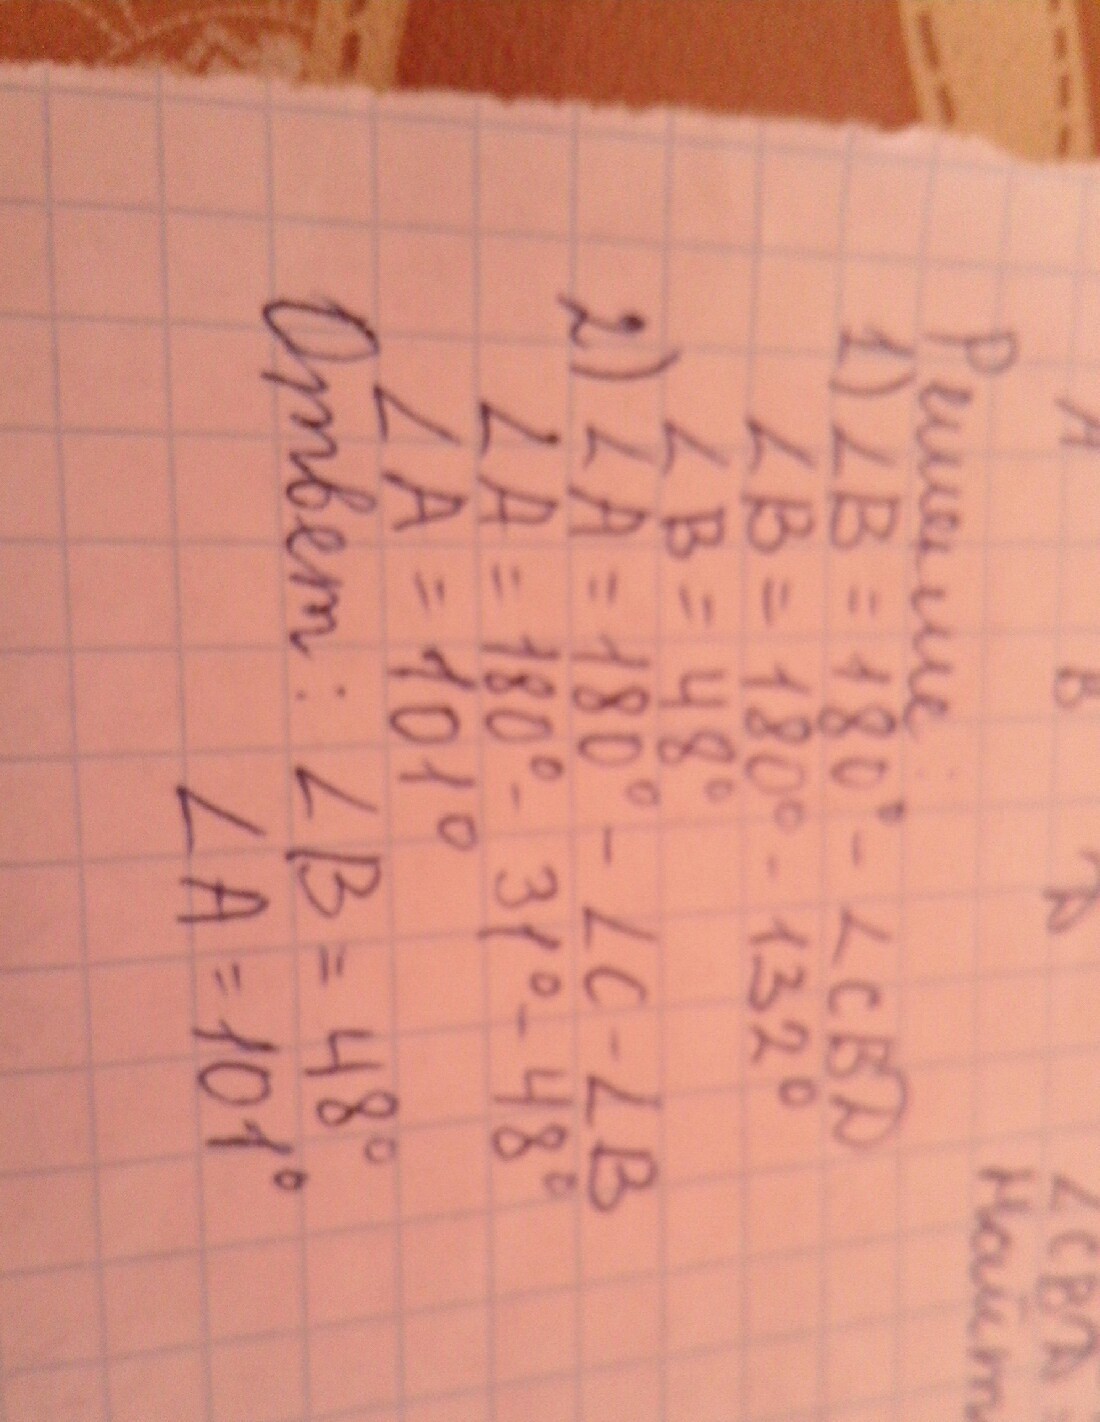 A B D ∠CBD =
Найти
Решение:
1) ∠B = 180° - ∠CBD
∠B = 180° - 132°
∠B = 48°
2) ∠A = 180° - ∠C - ∠B
∠A = 180° - 31° - 48°
∠A = 101°
Ответ: ∠B = 48°
∠A = 101°